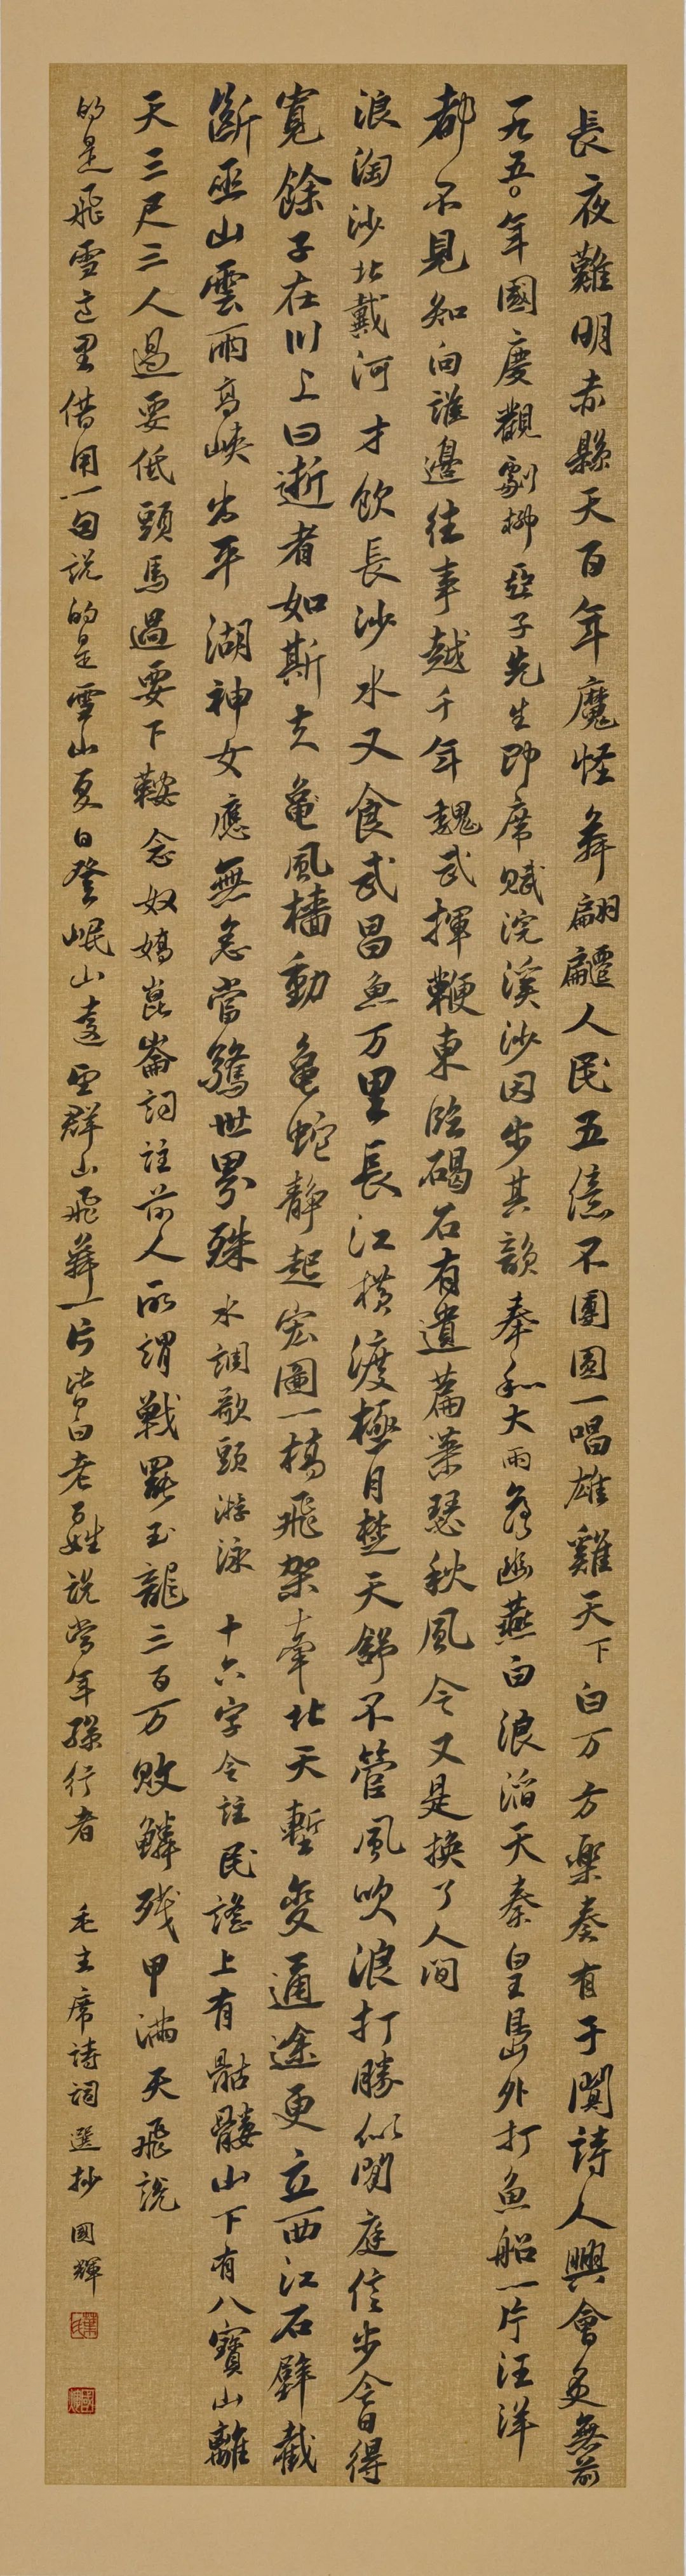 長夜難明赤縣天百年魔怪舞翩躚人民五億不團圓一唱雄雞天下白万方樂奏有于闐詩人興會更無前
一九五〇年國慶觀劇柳亞子先生即席賦浣溪沙因步其韻奉和大雨落幽燕白浪滔天秦皇島外打魚船一片汪洋
都不見知向誰邊往事越千年魏武揮鞭東臨碣石有遺篇蕭瑟秋風今又是換了人間
浪淘沙北戴河才飲長沙水又食武昌魚万里長江橫渡極目楚天舒不管風吹浪打勝似閒庭信步今日得
寬餘子在川上曰逝者如斯夫龜風檣動龜蛇靜起宏圖一橋飛架牽北天塹變通途更立西江石壁截
斷巫山雲雨高峽出平湖神女應無恙當驚世界殊水調歌頭游泳十六字令註民謠上有骷髏山下有八寶山離
天三尺三人過要低頭馬過要下鞍念奴嬌崑崙詞註前人所謂戰罷玉龍三百万敗鱗殘甲滿天飛說
的是飛雪這里借用一句說的是雪山夏日登岷山遠望群山飛舞一片皆白老百姓說當年孫行者
毛主席詩詞選抄 國輝